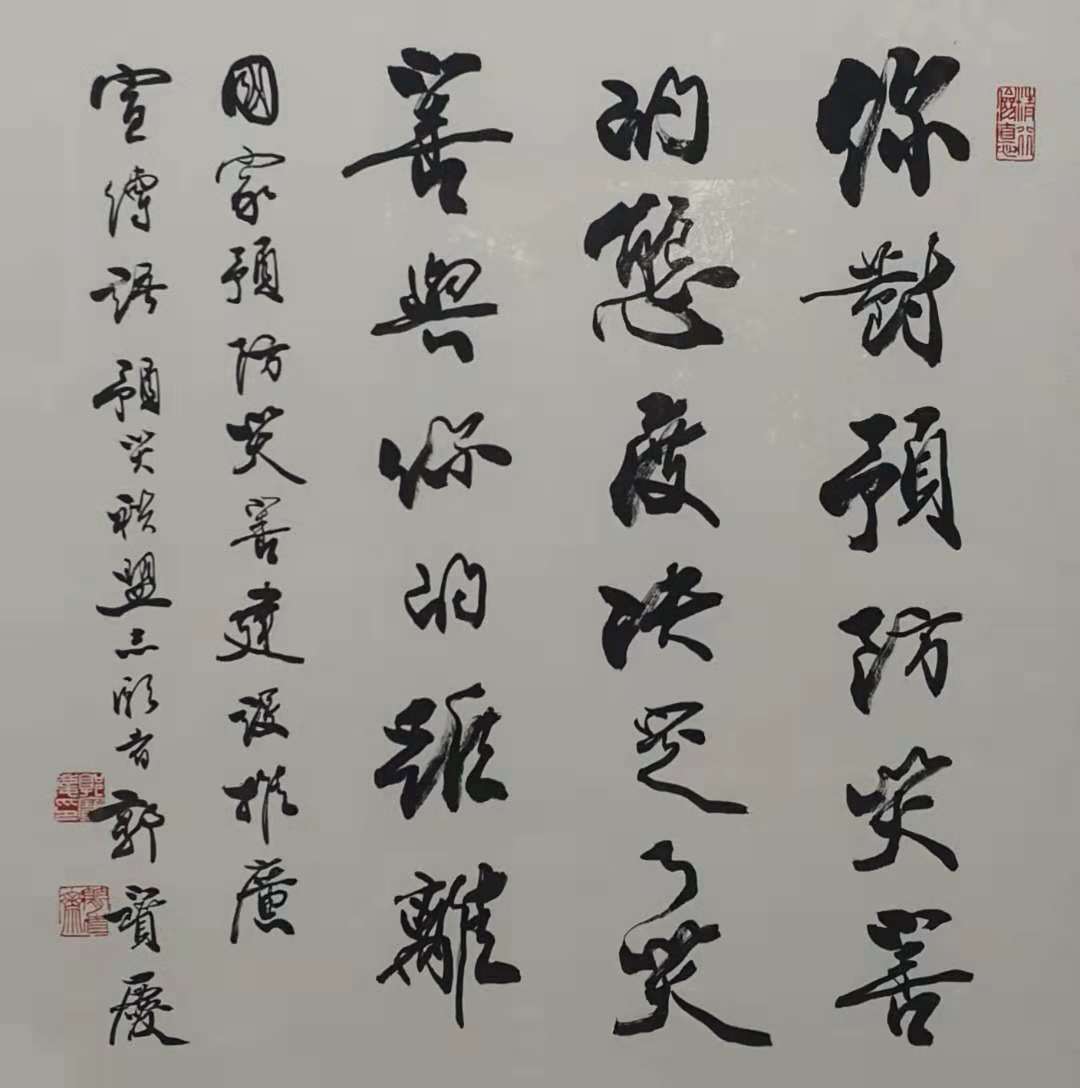 你對預防災害
的態度决定了災
害與你的距離
國家預防災害建設推廣
宣傳語 預災联盟志願者 郭寶慶